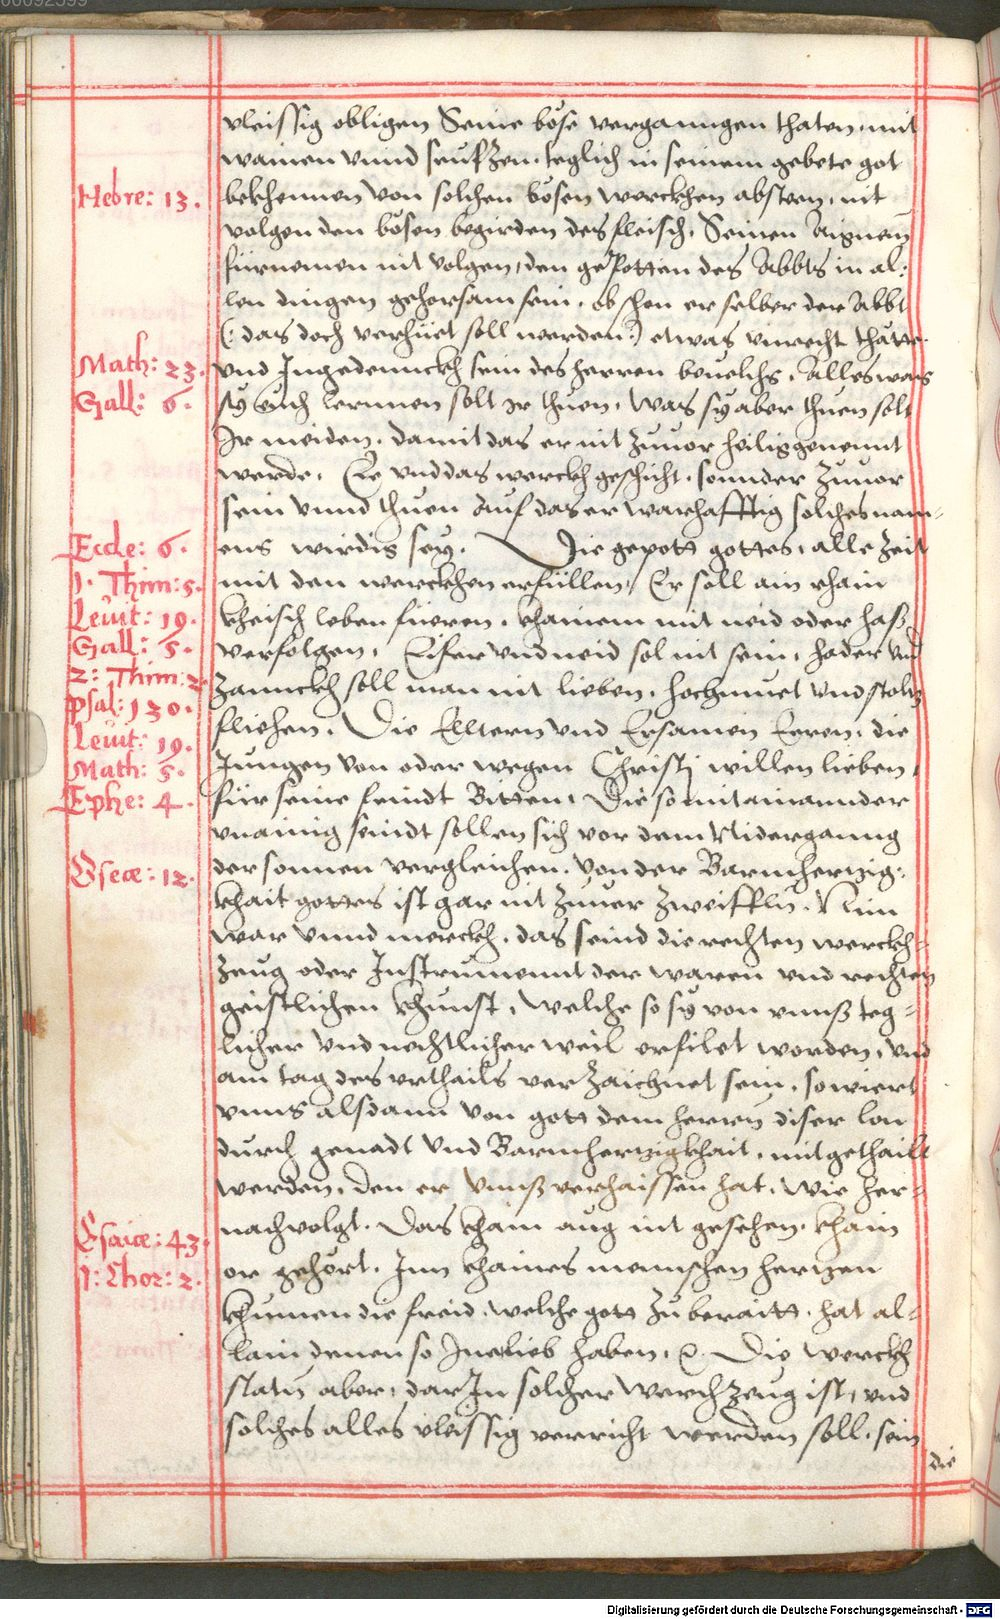 vleissig obligen Seine böse verganngen thaten, mit
wainen vnnd seufzen, teglich in seinem gebete got
Hebre: 13. bekhennen von solchen bösen werckhen absteen, nit
volgen den bösen begirden des fleisch. Seinen aignem
fürnemen nit volgen, den gepotten des Abbts in al:
len dingen gehorsam sein, ob schon er selber der Abbt
(: das doch verhüet soll werden :) etwas vnrecht thätte.
Math: 23. vnd Ingedennckh sein des herren beuelchs, Alles was
Gall: 6. sy euch lernnen solt ir thuen, Was sy aber thuen solt
Ir meiden, damit das er nit zuuor heilig genennt
werde, Ee vnd das werckh geschicht, sonnder zuuor
sein vnnd thuen Auf das er warhafftig solches nam-
Eccle: 6. ens wirdig sey. Die gepott gottes, alle Zeit
1. Thim: 5. mit den werckhen erfüllen, Er soll ain rhain
Leuit: 19. kheisch leben füeren, khainem mit neid oder haß
Gall: 5. verfolgen, Eifer vnd neid sol nit sein, hader vnd
2: Thim: 2. Zannckh soll man nit lieben, hochmuet vnd stoltz
Psal: 130. fliehen. Die Elltern vnd Ersamen Eeren, die
Leuit: 19.
Math: 5. Jungen von oder wegen Christj willen lieben,
Ephe: 4. für seine feindt Bitten, Die so mitainannder
vnainig seindt sollen sich vor dem Nidergannng
Osee: 12. der sonnen vergleichen. Von der Barmhertzig:
khait gottes ist gar nit zuuer zweifflen. Nim
war vnnd merckh, das seind die rechten werckh-
zeug oder Instrument der waren vnd rechten
geistlichen khunst, welche so sy von vnnß teg-
licher vnd nechtlicher weil erfilet worden, vnd
am tag des vrthails verzaichnet sein, so wiert
vnns alsdann von gott dem herren diser lon
durch genadt vnd Barmhertzigkhait, mitgethailt
werden, den er vnnß verhaissen hat, wie her-
Esaiæ: 43. nachvolgt. Das kham aug nit gesehen, kham
1: Chor: 2. or gehört. Inn khaines mennschen hertzen
khumen die freid, welche gott zuberaitt, hat al-
lain denen so Ine lieb haben. Die werckh
statt aber, dar In solcher werchzeug ist, vnd
solches alles vleissig verricht werden soll, sein
die
Digitalisierung gefördert durch die Deutsche Forschungsgemeinschaft - DFG